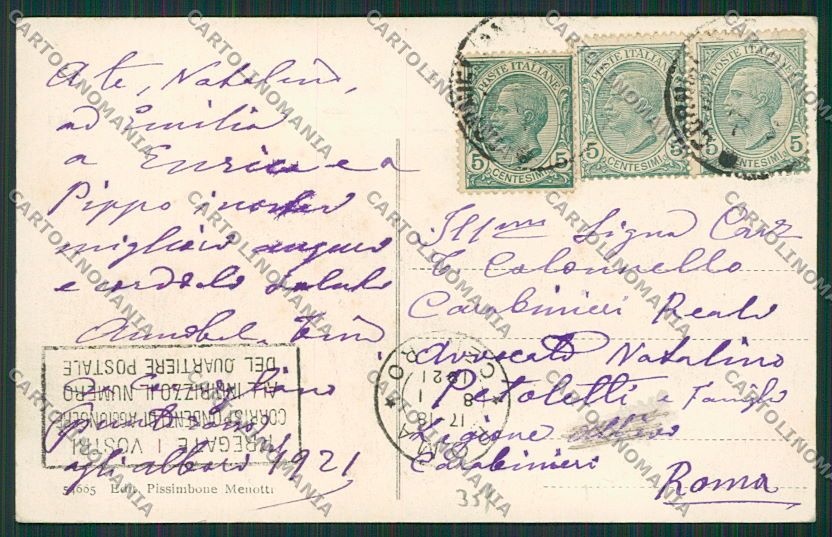 A te, Natalino,
ad Emilia
a Enrico e a
Pippo
migliori auguri
e cordiali saluti
agli albori 1921
54665 Edit. Pissimbone Menotti
POSTE ITALIANE
5 CENTESIMI 5
POSTE ITALIANE
5 CENTESIMI 5
POSTE ITALIANE
5 CENTESIMI 5
Ill.mo Signor Cav
T. Colonnello
Carabinieri Reali
Avvocato Natalino
Petoletti e Famiglia
Legione
Carabinieri
Roma
PREGATE I VOSTRI
CORRISPONDENTI DI AGGIUNGERE
ALL'INDIRIZZO IL NUMERO
DEL QUARTIERE POSTALE
ROMA CENTRO
17-18
8 1
1921
CARTOLINOMANIA